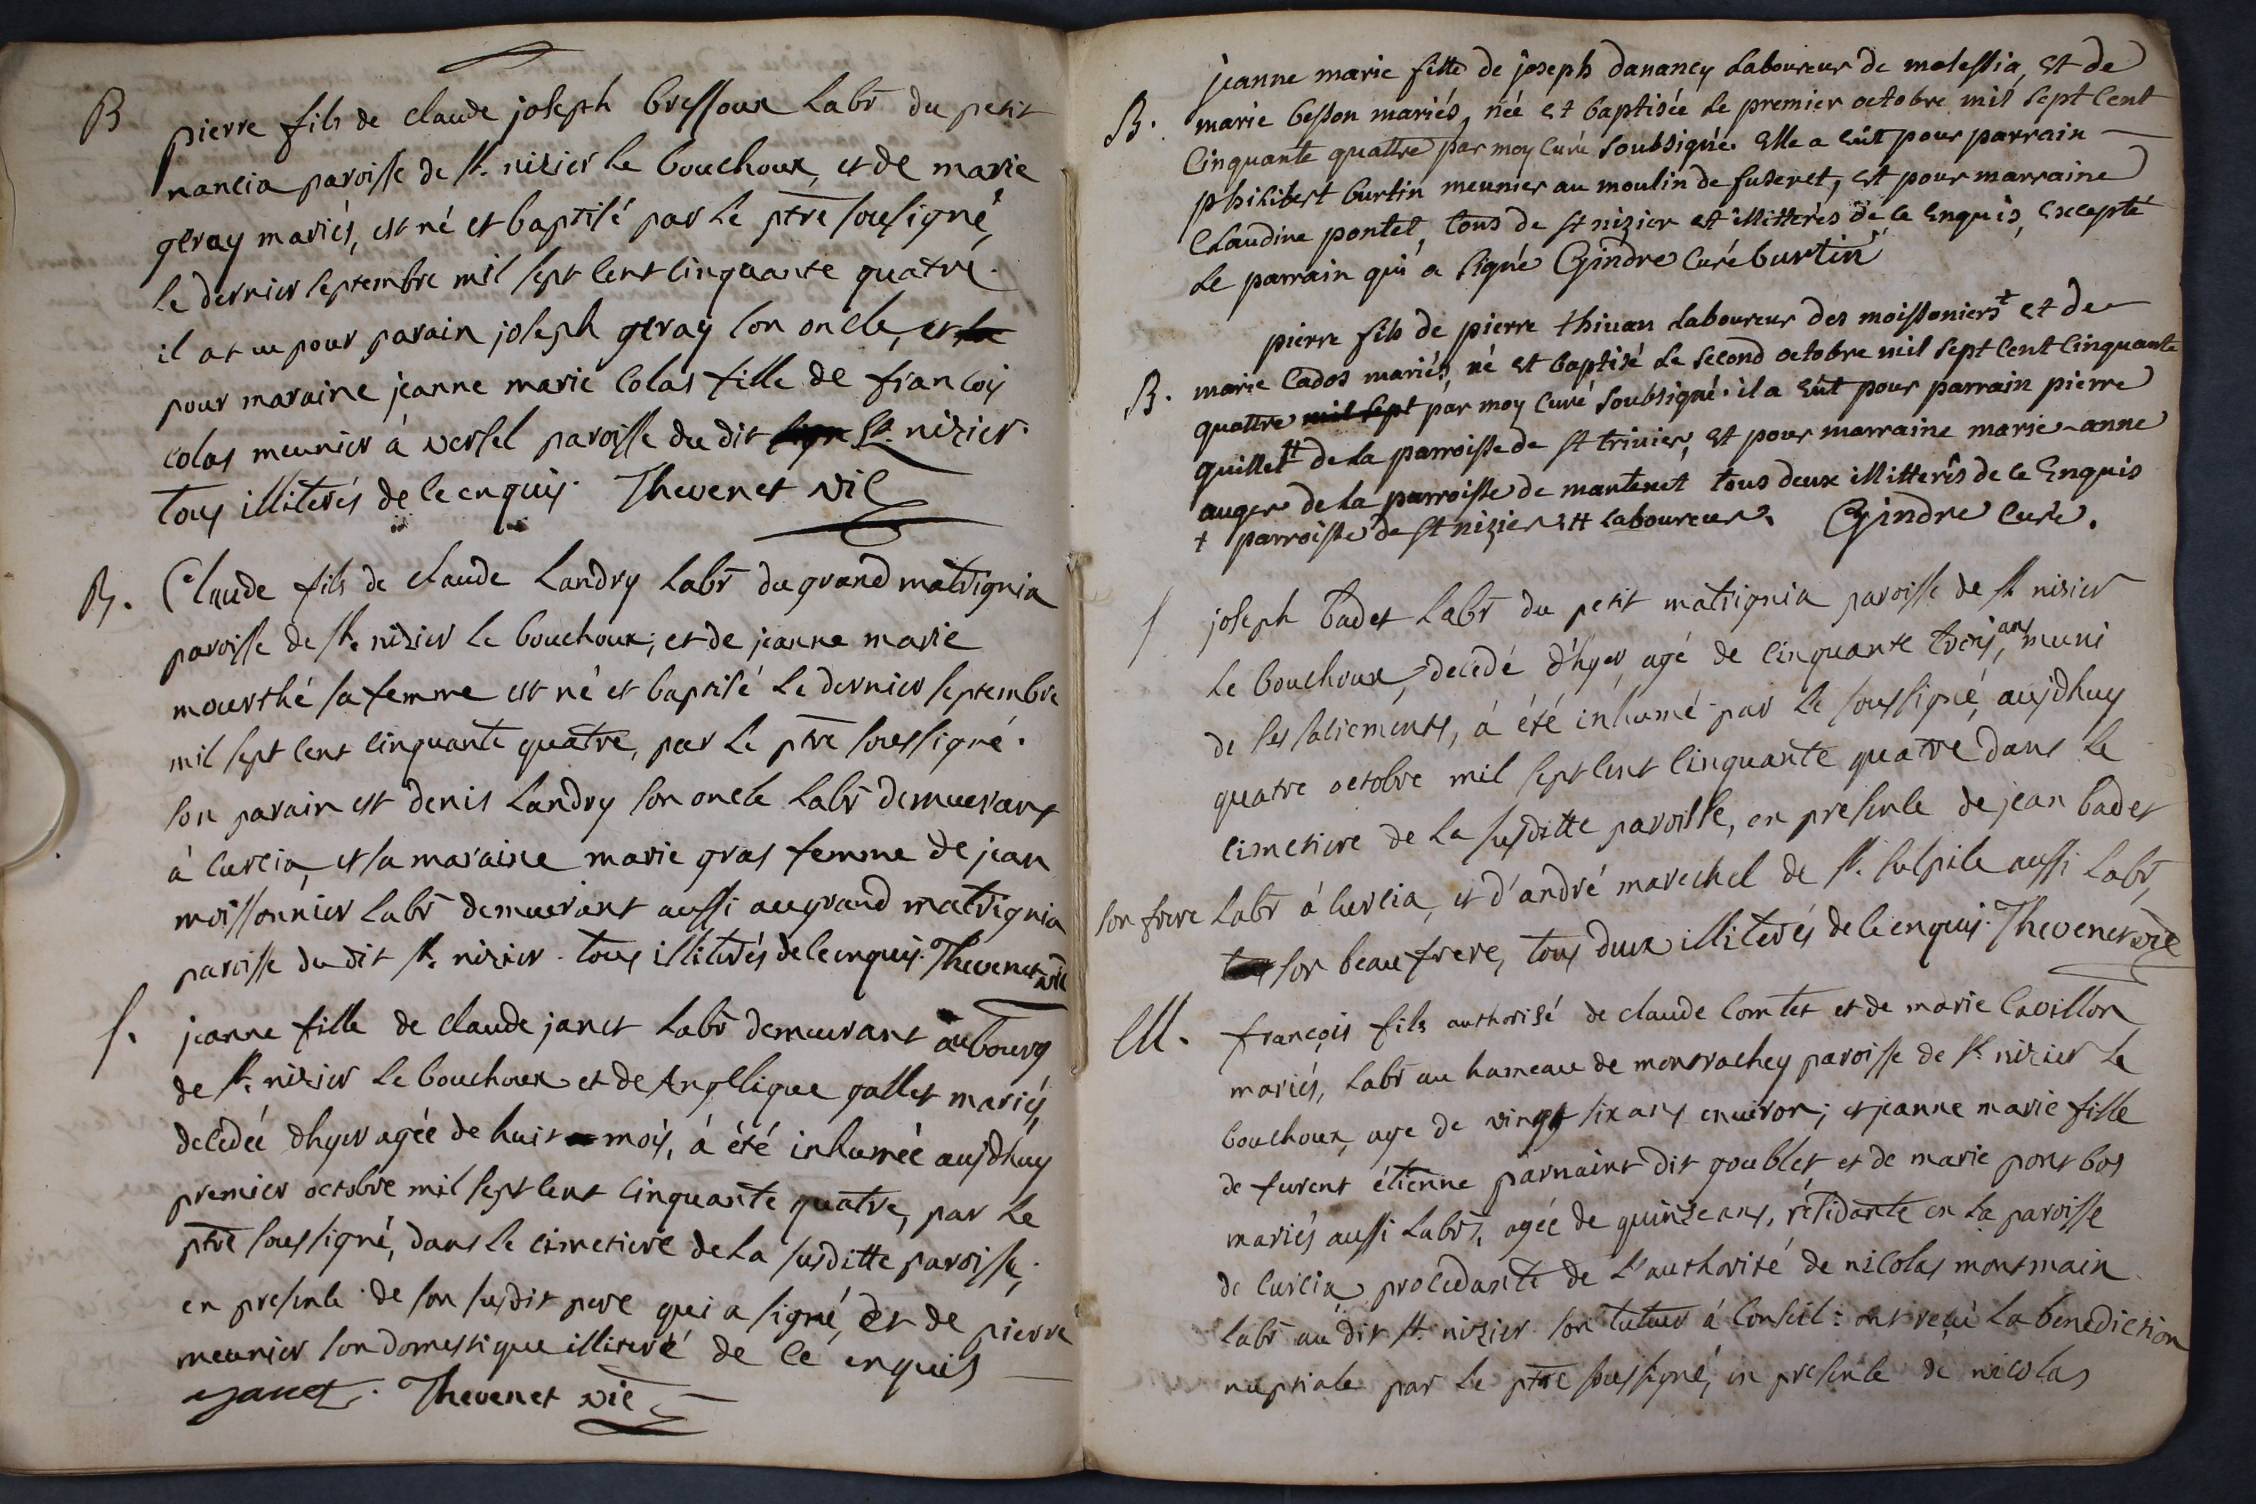 B
pierre fils de claude joseph bressoux Labr du petit
nancia paroisse de st. nizier le bouchoux, et de marie
geray mariés, est né et baptisé par le ptre sousigné,
le dernier septembre mil sept cent cinquante quatre.
il at eu pour parain joseph geray son oncle, et la
pour maraine jeanne marie Colas fille de francois
colas meunier à versel paroisse du dit st. nizier.
tous illiterés de ce enquis. Thevenet vic
B.
Claude fils de claude Landry Labr du grand matrignia
paroisse de st. nizier le bouchoux; et de jeanne marie
mourthé sa femme est né et baptisé le dernier septembre
mil sept cent cinquante quatre, par le ptre soussigné.
son parain est denis Landry son oncle Labr demeurant
à curcia, et sa maraine marie gras femme de jean
moissonnier Labr demeurant aussi au grand matrignia
paroisse du dit st. nizier. tous illiterés de ce enquis. Thevenet vic
s.
jeanne fille de claude janet Labr demeurant au bourg
de st. nizier le bouchoux et de Angelique gallet mariés,
decedée d'hyer agée de huit mois, à été inhumée aujdhuy
premier octobre mil sept cent cinquante quatre, par le
ptre soussigné, dans le cimetiere de la susditte paroisse,
en presence de son susdit pere qui a signé, et de pierre
meunier son domestique illiteré de ce enquis
janet. Thevenet vic
jeanne marie fille de joseph dananey Laboureur de molessia, et de
B. marie besson mariés, née et baptisée le premier octobre mil sept cent
Cinquante quattre par moy curé soubsigné. Elle a eût pour parrain
philibert burtin meunier au moulin de fuseret, et pour marraine
Claudine pontet, tous de st nizier et illitterés de ce enquis, excepté
le parrain qui a signé Gindre Curé burtin
pierre fils de pierre thivan Laboureur des moissoniers + et de
B. marie Cados mariés, né et baptisé le second octobre mil sept cent cinquante
quattre mil sept par moy curé soubsigné. il a eût pour parrain pierre
quillet ++ de la parroisse de st trivier, et pour marraine marie-anne
auger de la parroisse de mantenet tous deux illitterés de ce Enquis
+ parroisse de st nizier ++ laboureur. Gindre Curé.
s
joseph badet Labr du petit matrignia paroisse de st nizier
le bouchoux, decedé d'hyer, agé de cinquante trois ans, muni
de ses sacrements, à été inhumé par le soussigné, aujdhuy
quatre octobre mil sept cent cinquante quatre dans le
cimetiere de la susditte paroisse, en presence de jean badet
son frere Labr à curcia, et d'andré marechel de st. sulpice aussi Labr,
son beau frere, tous deux illiterés de ce enquis. Thevenet vic
M.
françois fils authorisé de claude Comtet et de marie Cavillon
mariés, Labr au hameau de monrachey paroisse de st. nizier le
bouchoux, age de vingt six ans environ; et jeanne marie fille
de furent étienne parnaint dit goublet, et de marie pont bos
mariés aussi Labrs, agée de quinze ans, residante en la paroisse
de curcia, procedante de l'authorité de nicolas montmain
Labr au dit st. nizier son tuteur à conseil: ont reçû la benediction
nuptiale par le ptre soussigné, in presence de nicolas